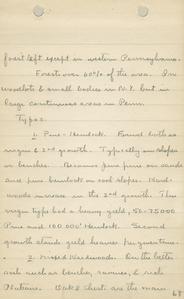 forest left except in western Pennsylvania.
Forest over 60% of the area. In
woodlots & small bodies in N.Y. but in
large continuous areas in Penn.
Types:
1. Pine - Hemlock. Found both as
virgin & 2nd growth. Typically on slopes
or benches. Becomes pure pine on sands
and pure hemlock on cool slopes. Hard-
woods increase in the 2nd growth. The
virgin type had a heavy yield, 50-75000
Pine and 100,000' Hemlock. Second
growth stands yield heavier
2. Mixed Hardwoods. On the better
soils such as benches, ravines, & rich
Oak & Chest. are the main
68